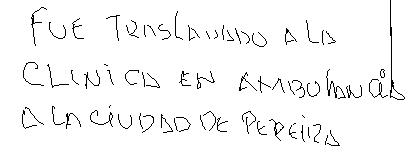 FUE TRASLADADO A LA
CLINICA EN AMBULANCIA
A LA CIUDAD DE PEREIRA